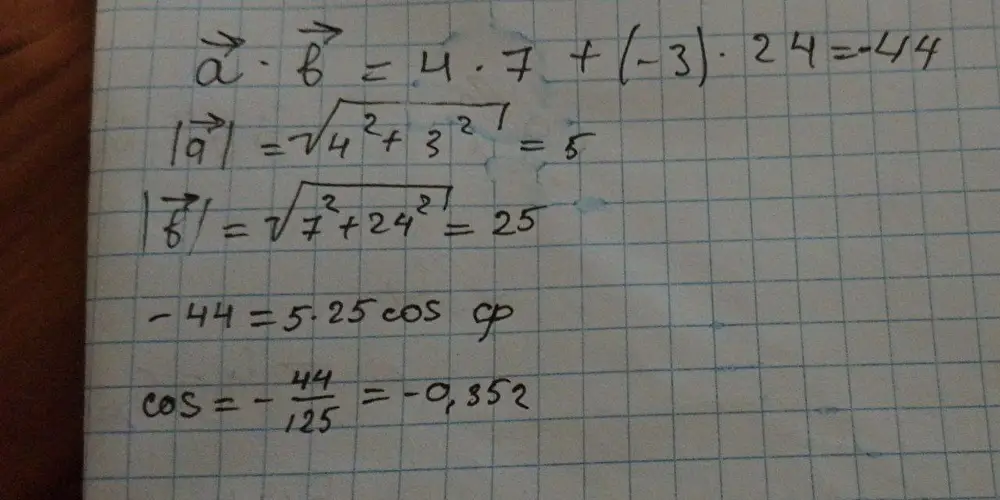 a⃗ · b⃗ = 4 · 7 + (-3) · 24 = -44
|a⃗| = √(4² + 3²) = 5
|b⃗| = √(7² + 24²) = 25
-44 = 5·25 cos φ
cos = - 44/125 = -0,352